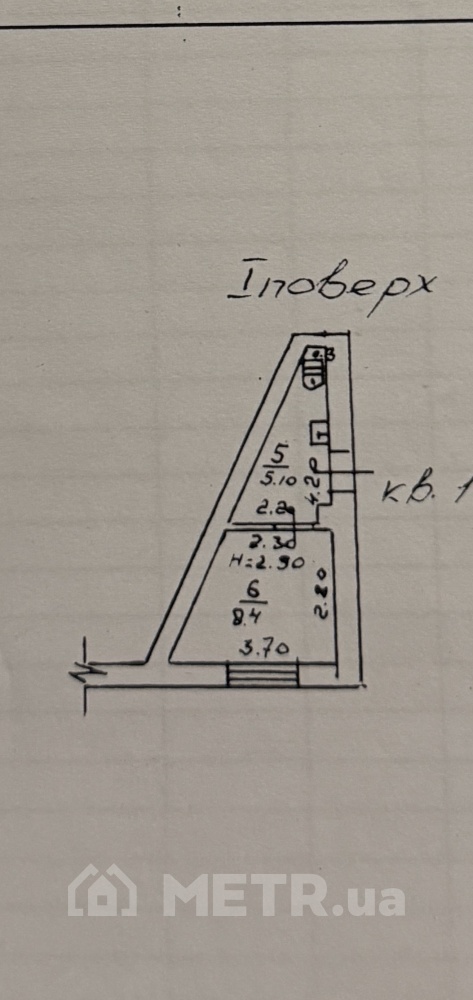 I поверх
0.3
5
5.10
4.20
кв. 1
2.20
2.30
H=2.90
6
8.4
2.80
3.70
METR.ua